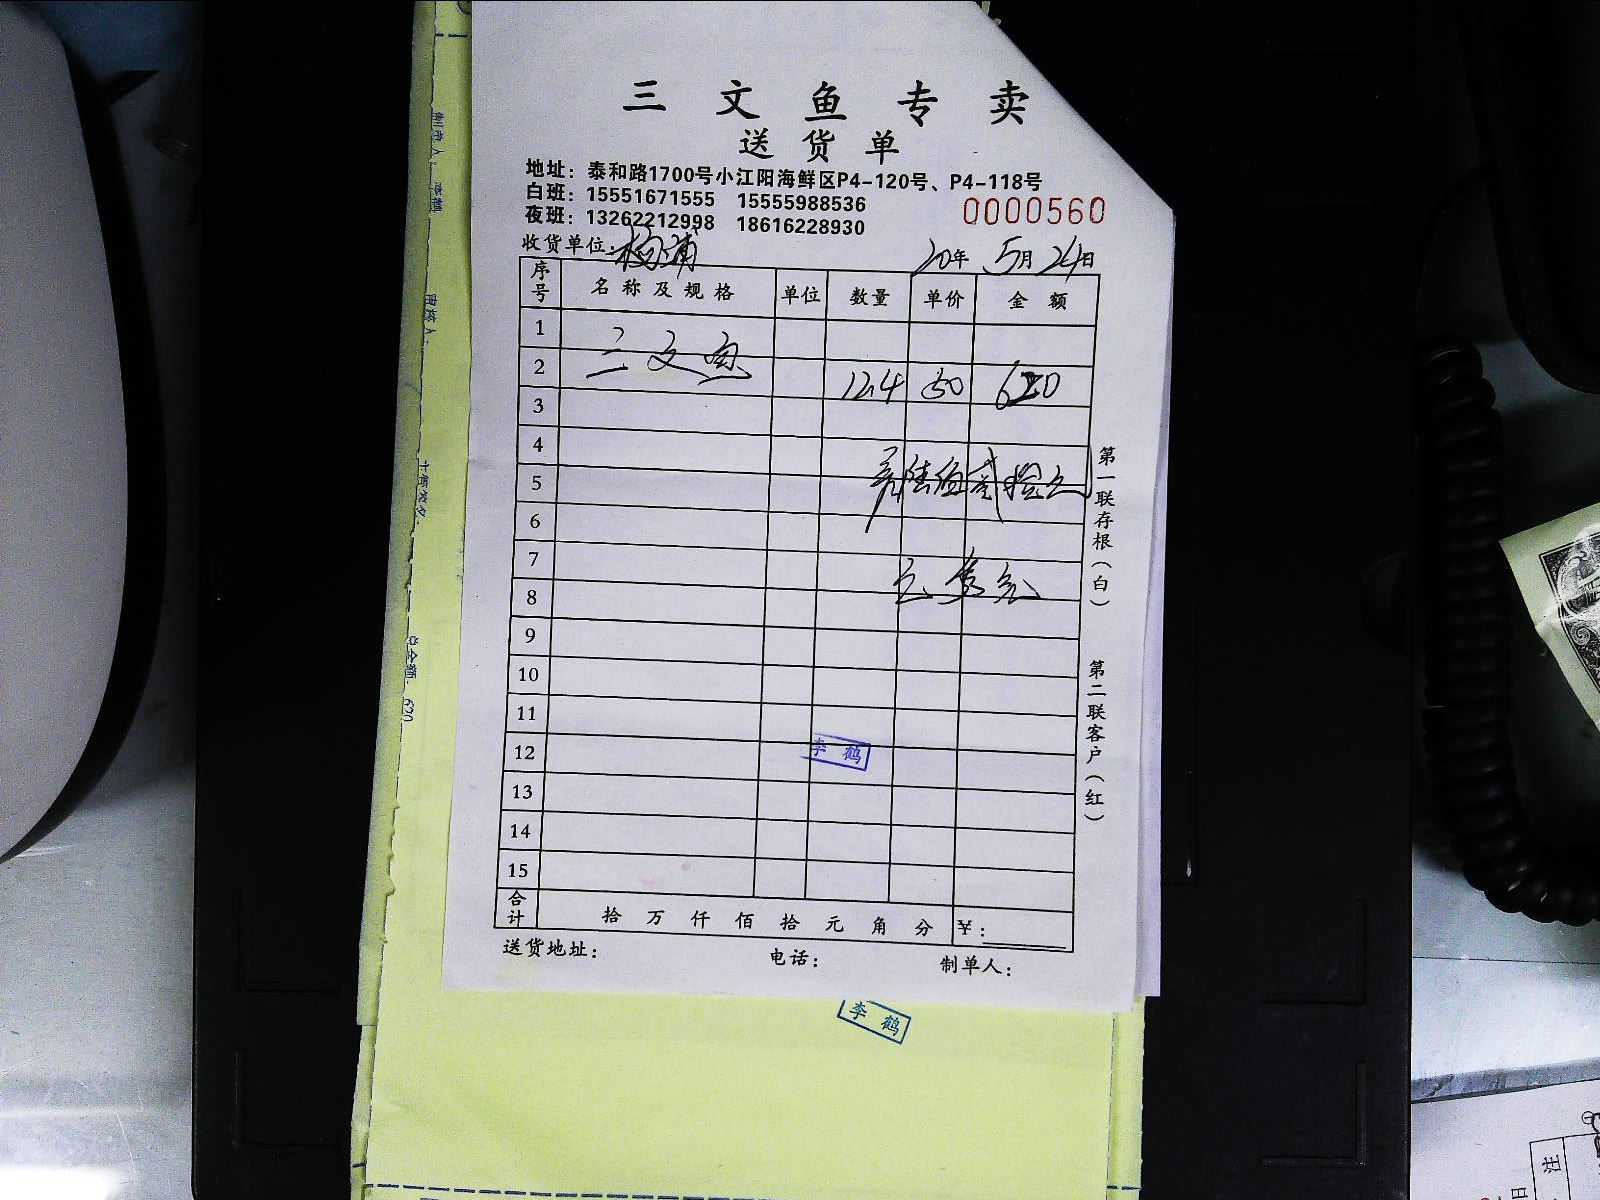 三文鱼专卖
送货单
地址：泰和路1700号小江阳海鲜区P4-120号、P4-118号
白班：15551671555 15555988536
夜班：13262212998 18616228930
0000560
收货单位：杨浦 20年 5月 24日
序号 名称及规格 单位 数量 单价 金额
1
2 三文鱼 12.4 50 620
3
4
5 陆佰贰拾元
6
7
8
9
10
11
12 李鹤
13
14
15
合计 拾 万 仟 佰 拾 元 角 分 ￥：
送货地址： 电话： 制单人：
第一联存根（白）
第二联客户（红）
李鹤
制单人：李鹤
审核人：
总金额：620
注
日